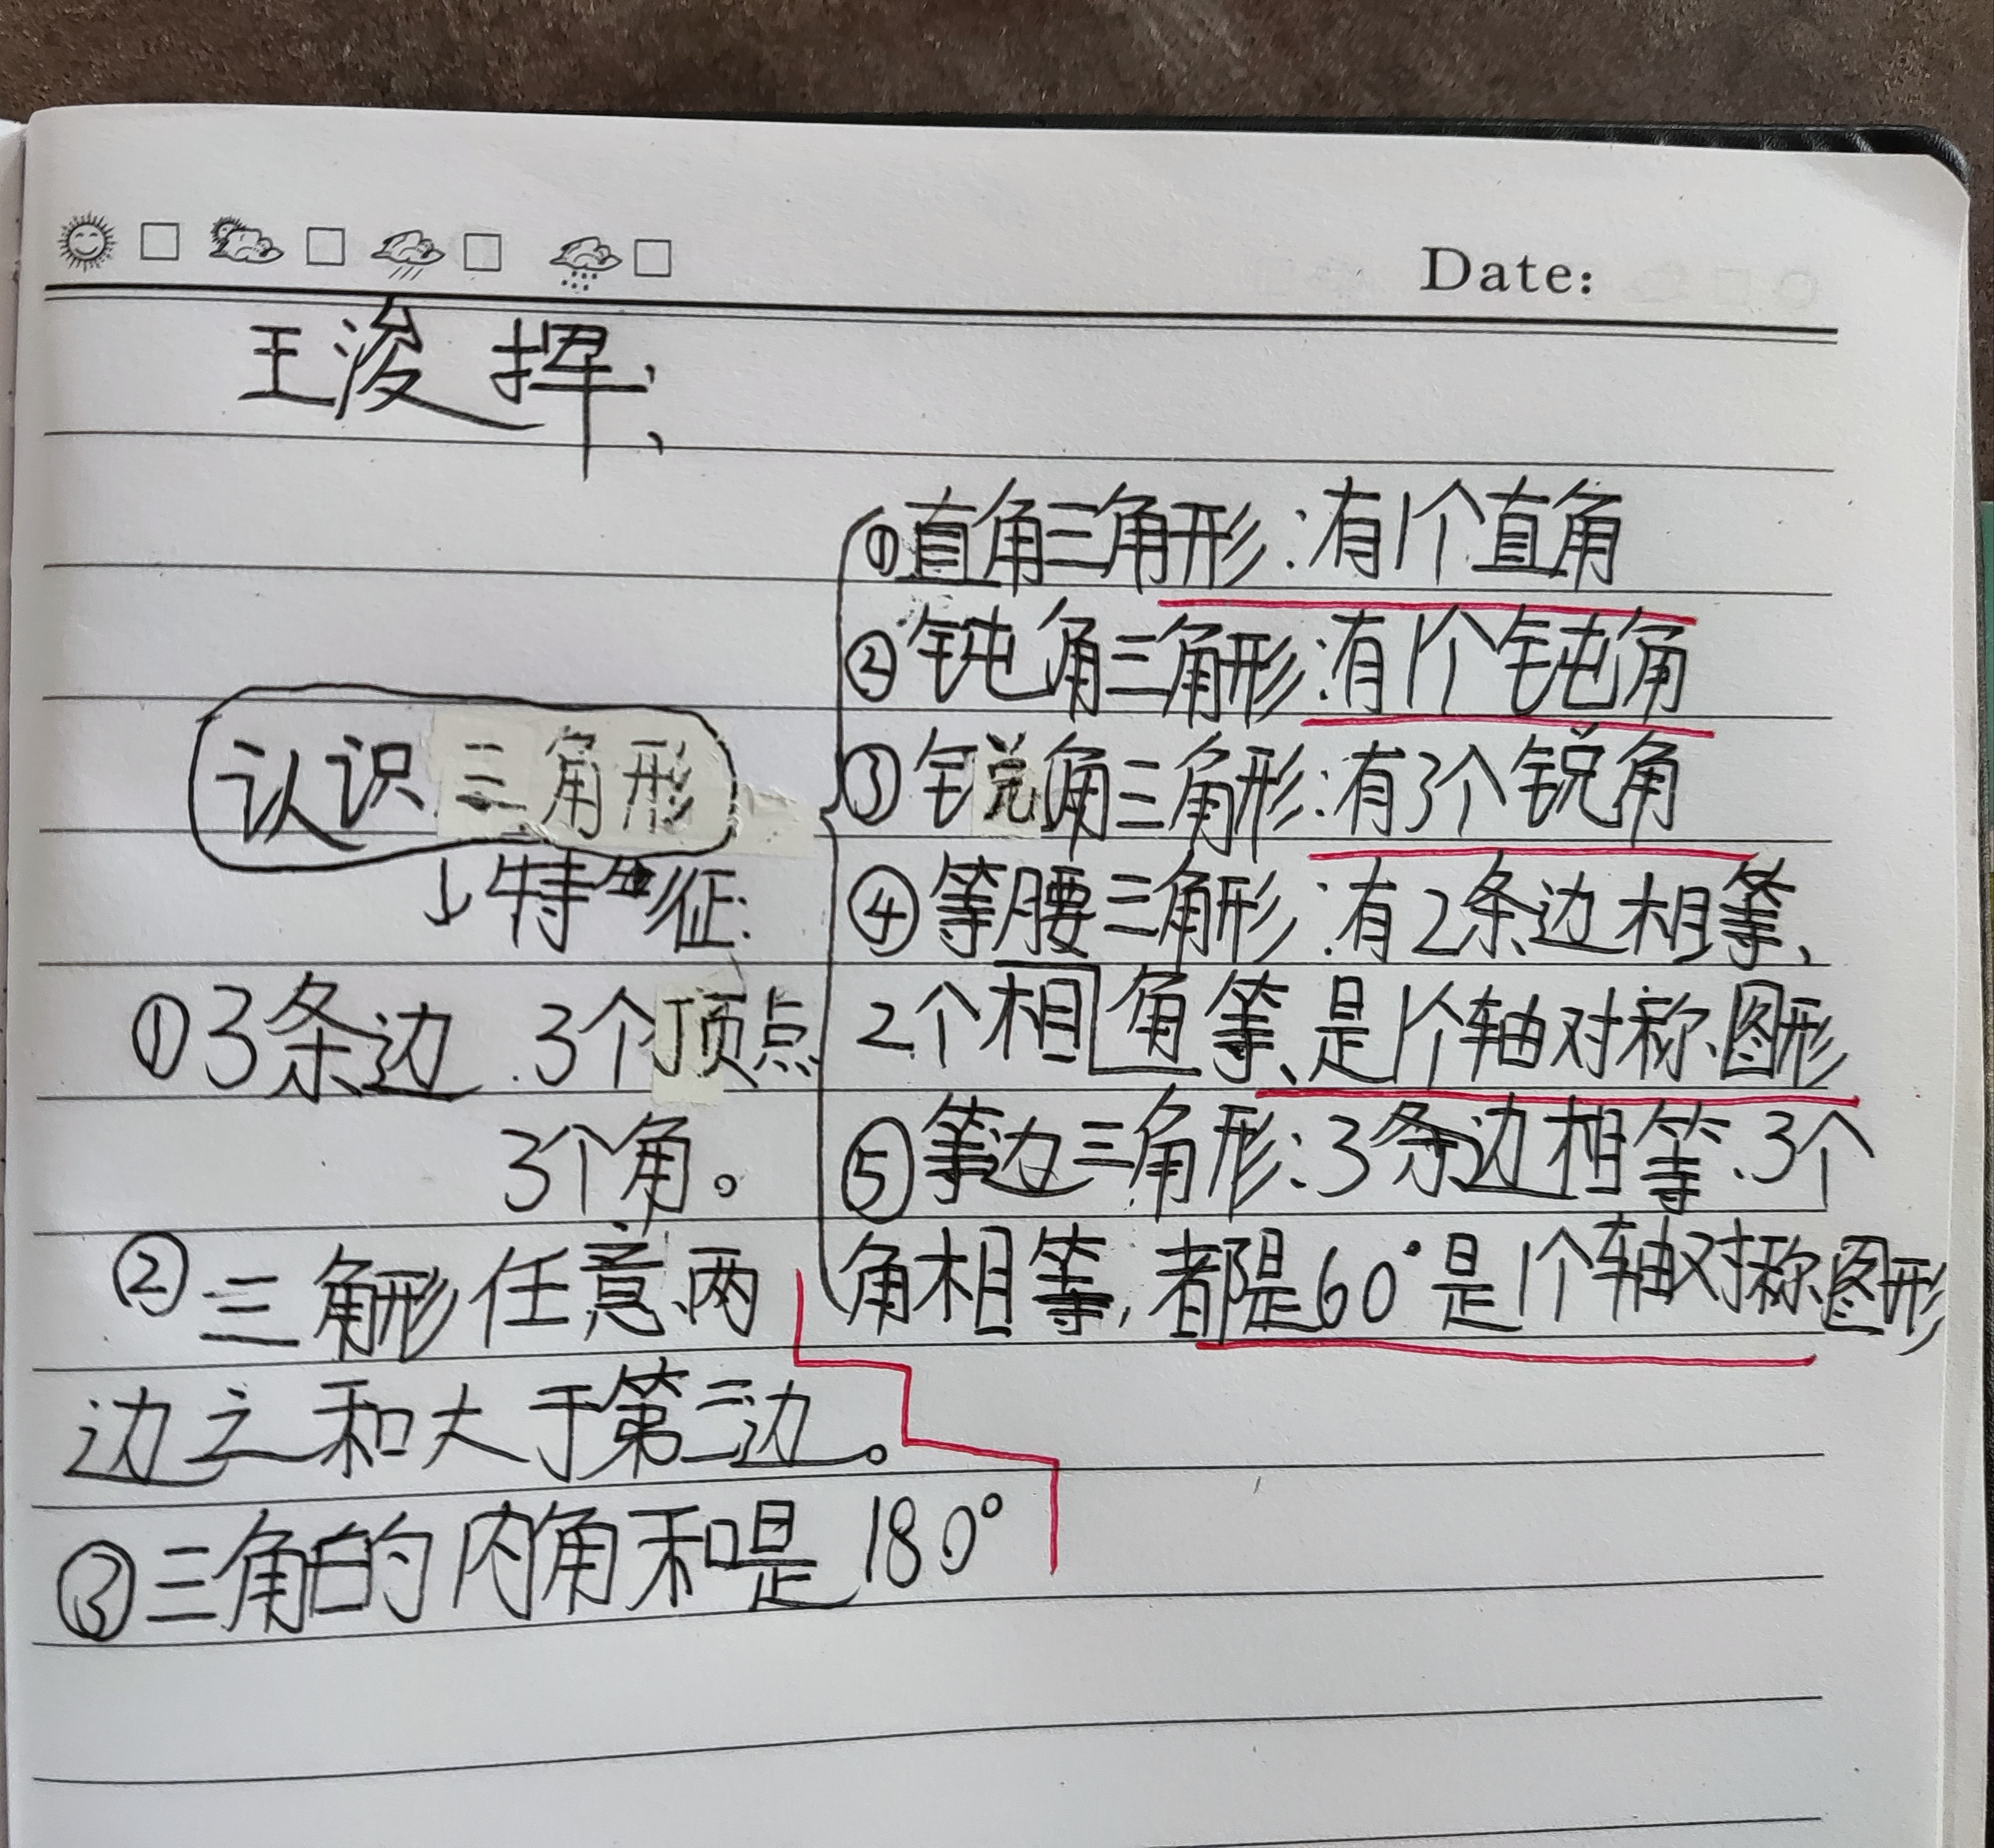 Date:
王浚挥:
认识三角形
↓特征:
①3条边 3个顶点
3个角。
②三角形任意两
边之和大于第三边。
③三角的内角和是180°
①直角三角形:有1个直角
②钝角三角形:有1个钝角
③锐角三角形:有3个锐角
④等腰三角形:有2条边相等、
2个相角等、是1个轴对称图形
⑤等边三角形:3条边相等、3个
角相等,都是60°是1个轴对称图形